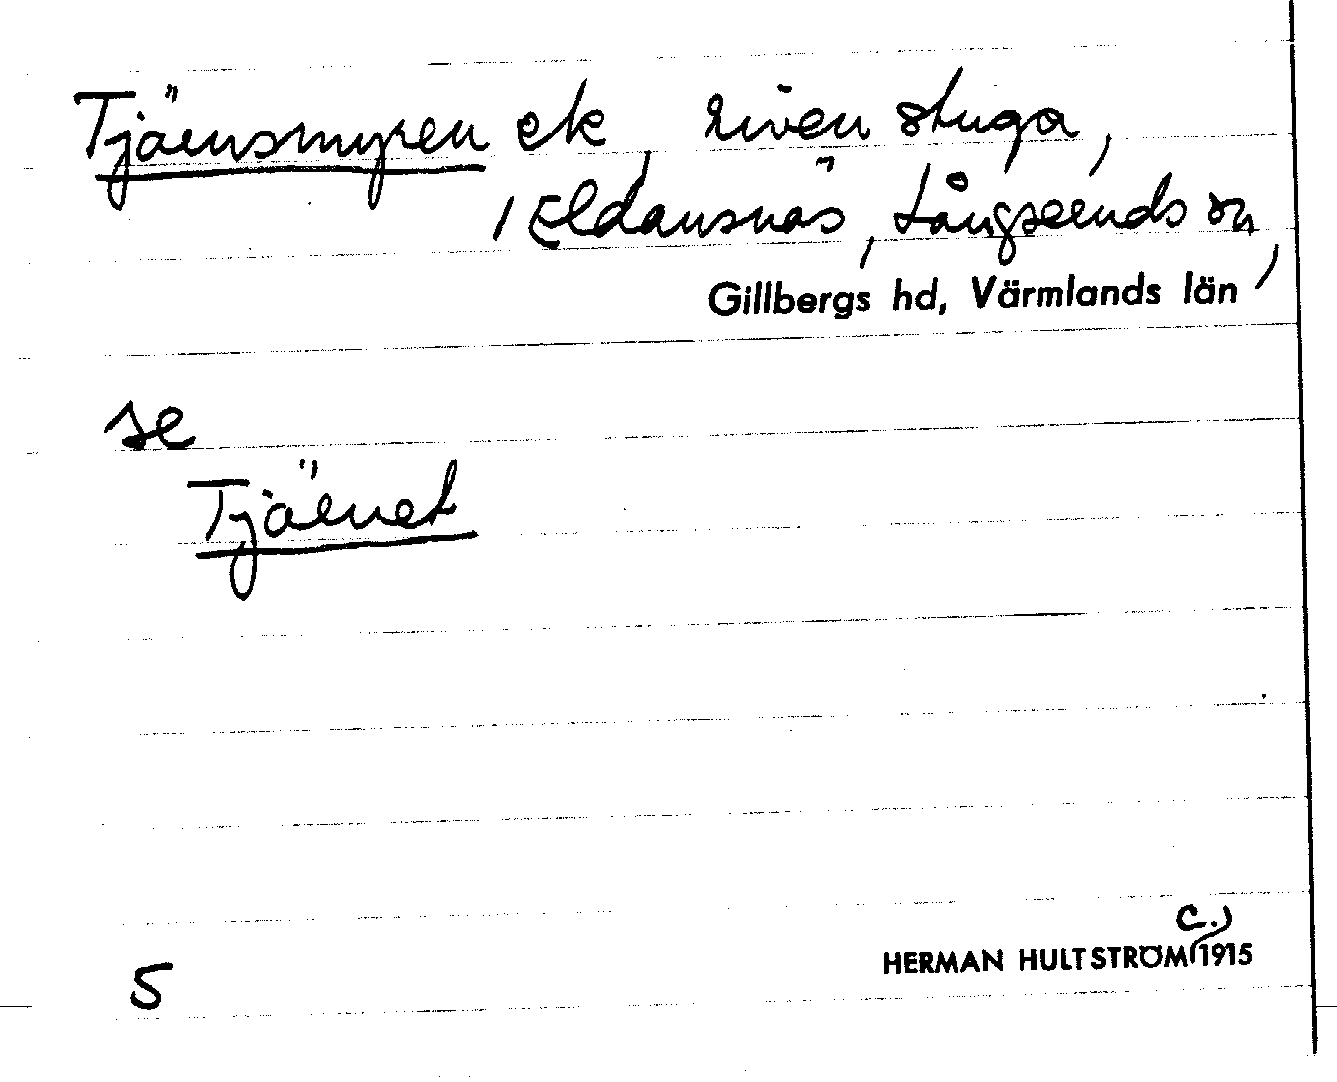 Tjäensmyren ek, riven stuga,
i Eldansnäs, Långseruds sn,
Gillbergs hd, Värmlands län
se
Tjäenet
5
HERMAN HULTSTRÖM c.) 1915